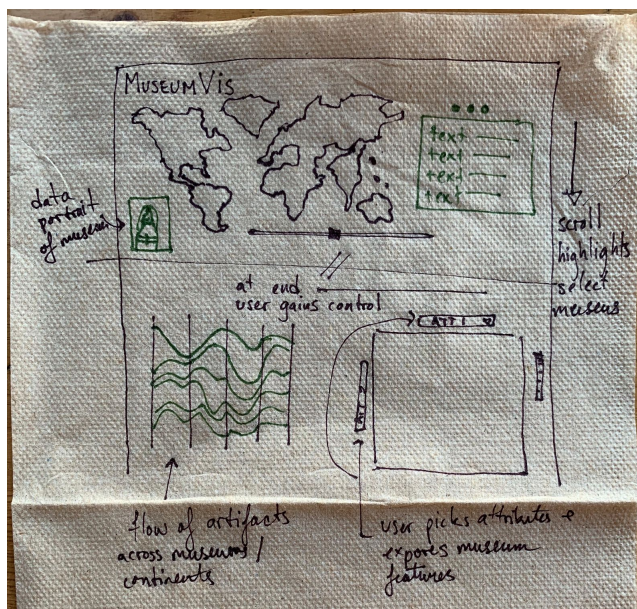 MUSEUMVIS
text
text
text
text
data
portrait
of museum
scroll
highlights
select
museus
at end
user gains control
ATT 1
flow of artifacts
across museums /
continents
user picks attributes +
expores museum
features